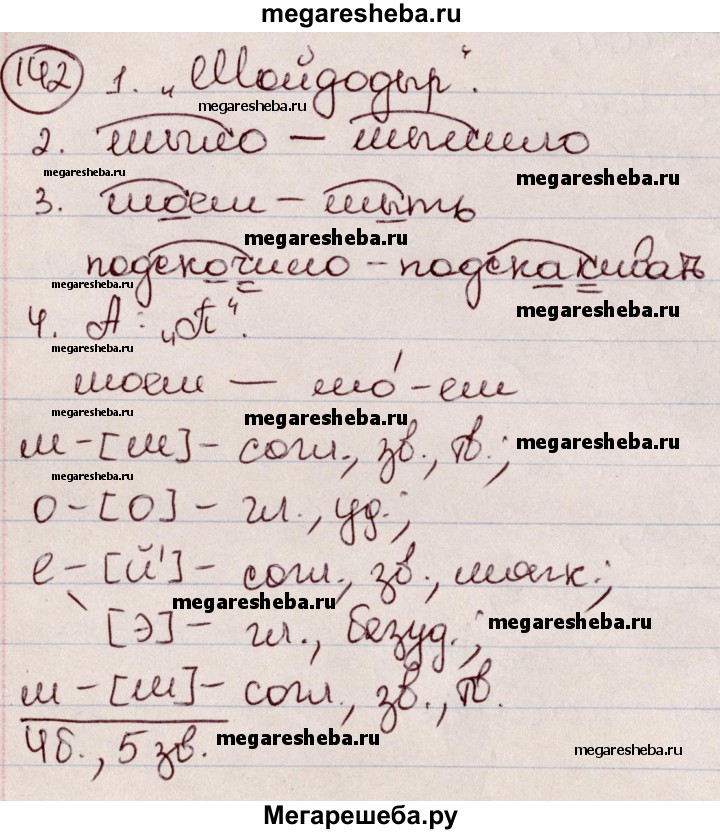 megaresheba.ru
142 1. „Мойдодыр“.
megaresheba.ru
2. мыло – мылило
megaresheba.ru megaresheba.ru
3. моем – мыть
megaresheba.ru
подскочило – подскакивать
megaresheba.ru
4. А: „П“.
megaresheba.ru
моем — мо́-ем
megaresheba.ru megaresheba.ru
м – [м] – согл., зв., тв.;
megaresheba.ru
megaresheba.ru
о – [о] – гл., уд.;
е – [й'] – согл., зв., мягк.;
megaresheba.ru
[э] – гл., безуд.;
megaresheba.ru
м – [м] – согл., зв., тв.
4б., 5 зв.
megaresheba.ru
megaresheba.ru
Мегарешеба.ру